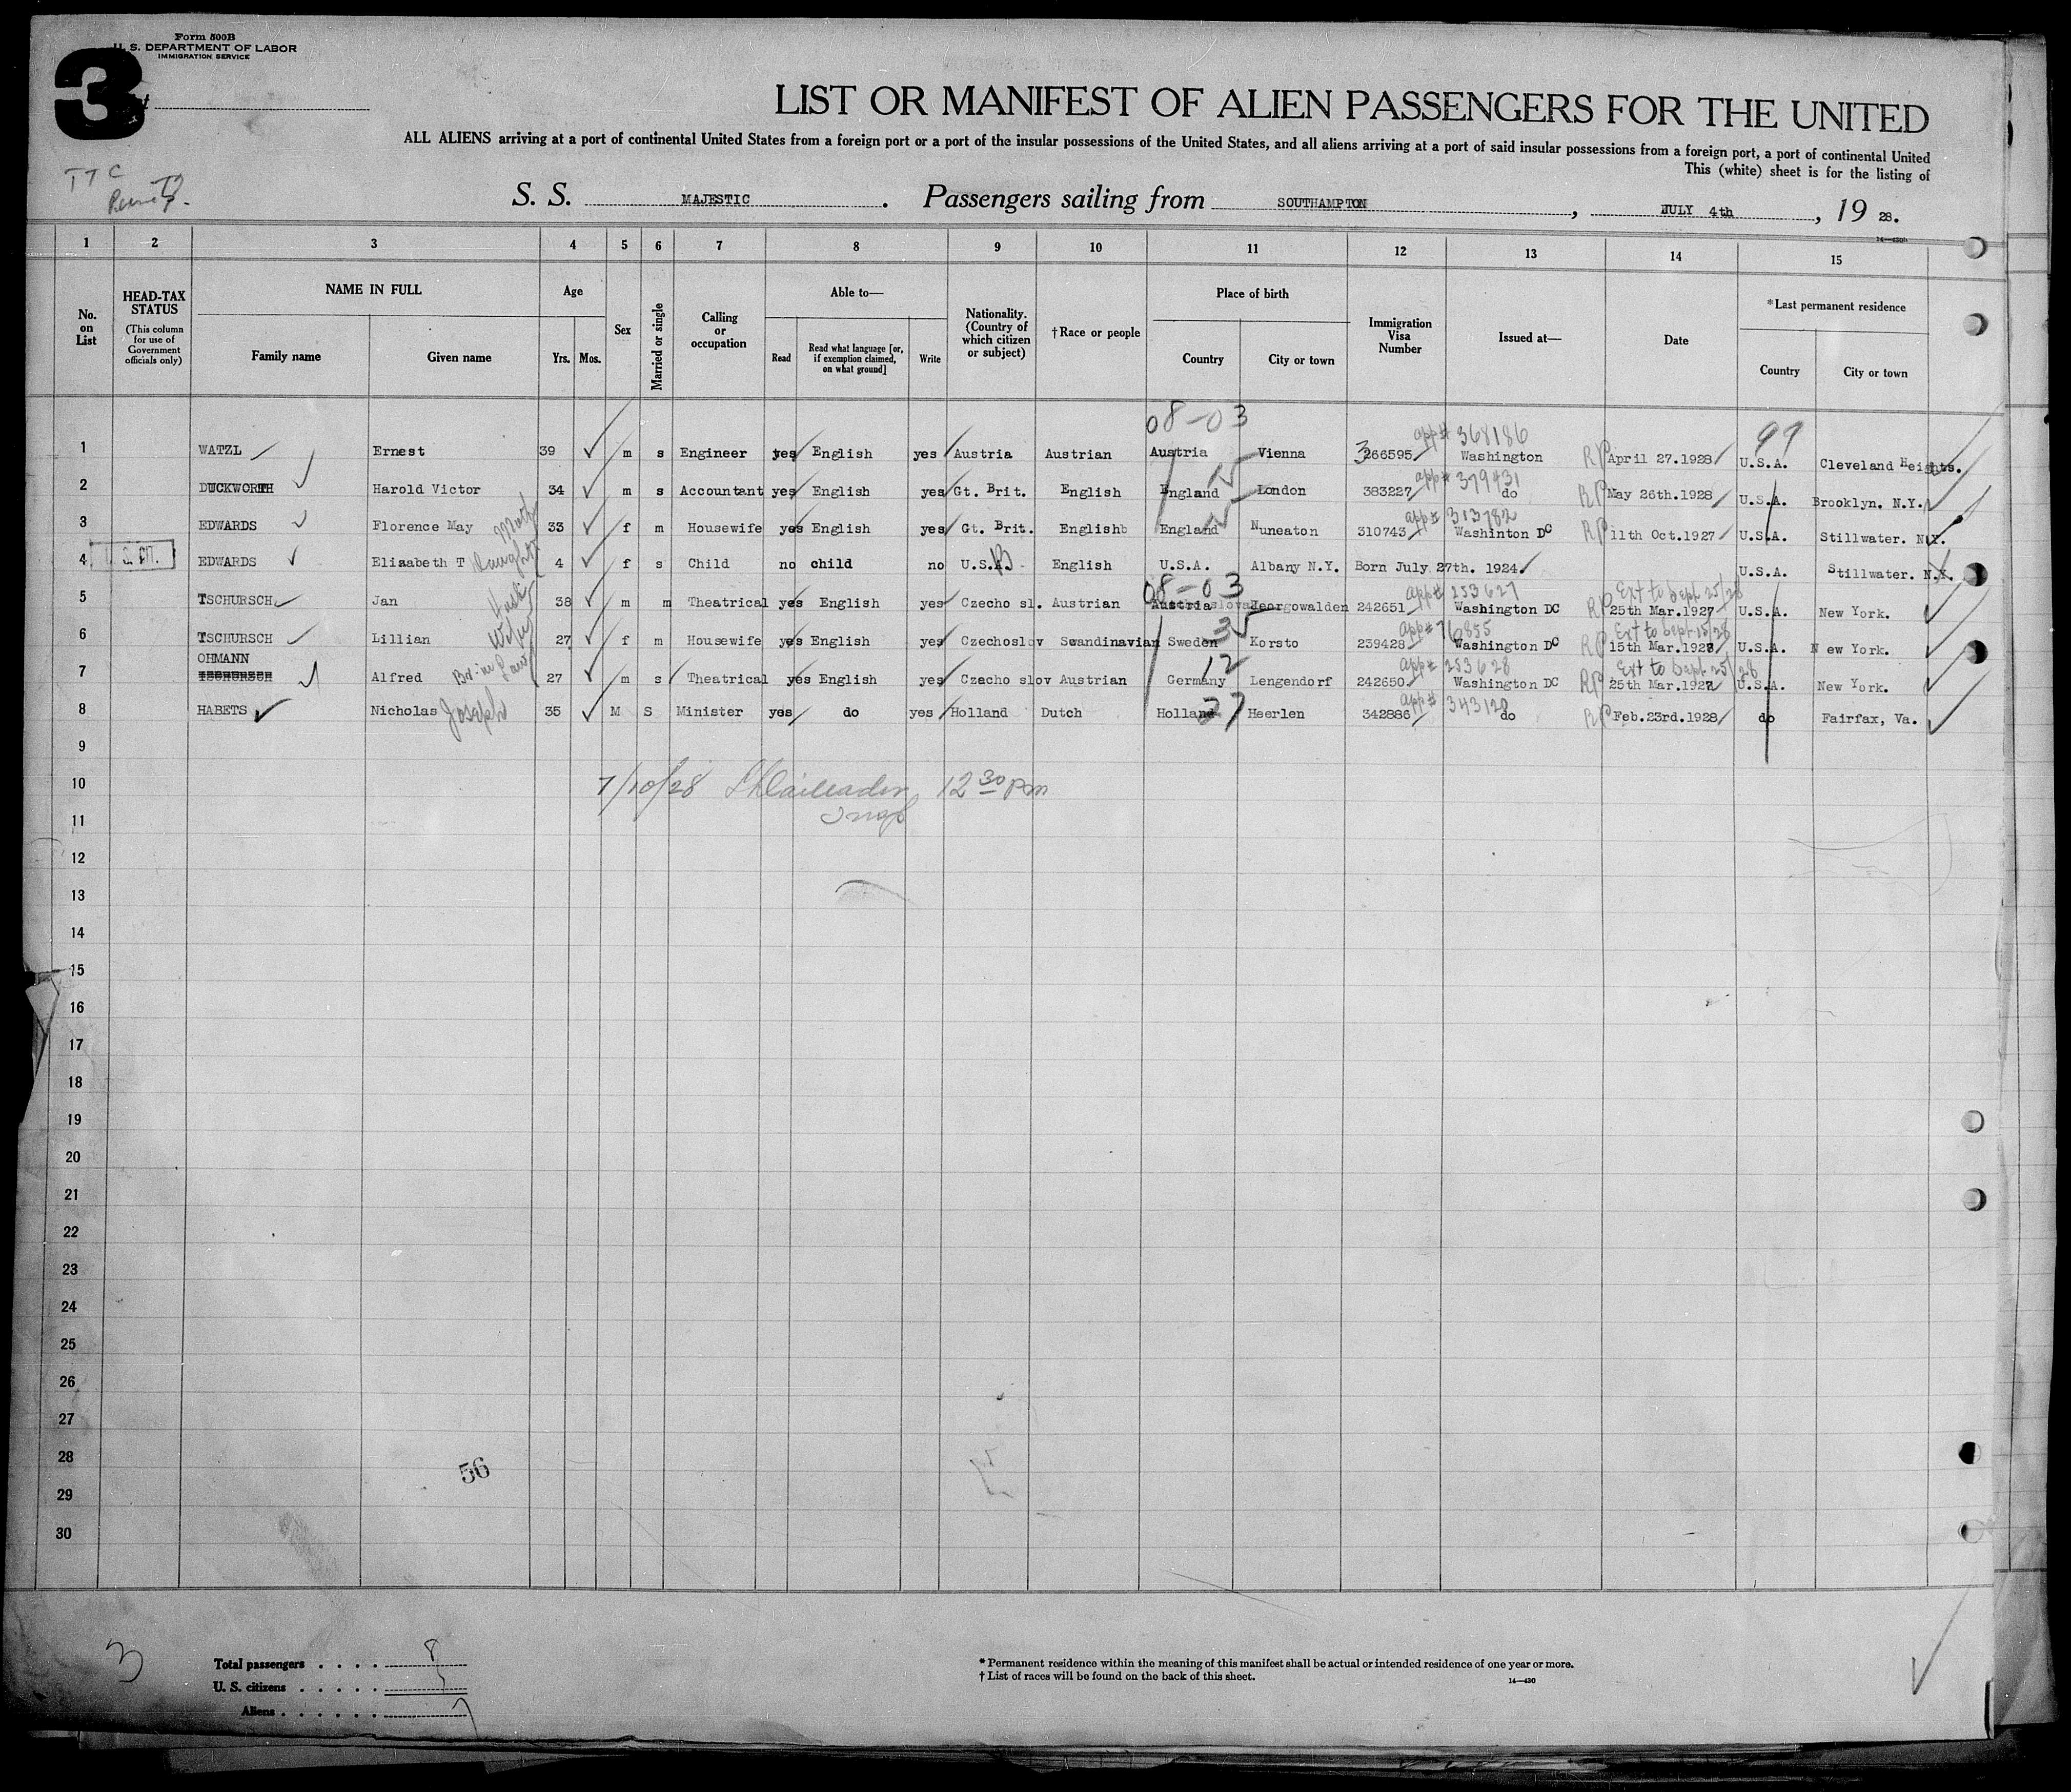 Form 500B
U. S. DEPARTMENT OF LABOR
IMMIGRATION SERVICE
3
LIST OR MANIFEST OF ALIEN PASSENGERS FOR THE UNITED
ALL ALIENS arriving at a port of continental United States from a foreign port or a port of the insular possessions of the United States, and all aliens arriving at a port of said insular possessions from a foreign port, a port of continental United
This (white) sheet is for the listing of
TTC
S. S. MAJESTIC. Passengers sailing from SOUTHAMPTON, JULY 4th, 19 28.
14—430b
1 2 3 4 5 6 7 8 9 10 11 12 13 14 15
No. on List
HEAD-TAX STATUS (This column for use of Government officials only)
NAME IN FULL Family name Given name
Age Yrs. Mos.
Sex
Married or single
Calling or occupation
Able to— Read Read what language [or, if exemption claimed, on what ground] Write
Nationality. (Country of which citizen or subject)
†Race or people
Place of birth Country City or town
Immigration Visa Number
Issued at—
Date
*Last permanent residence Country City or town
08-03 app# 368186 99
1 WATZL Ernest 39 m s Engineer yes English yes Austria Austrian Austria Vienna 3266595 Washington RP April 27.1928 U.S.A. Cleveland Heights.
app# 379431
2 DUCKWORTH Harold Victor 34 m s Accountant yes English yes Gt. Brit. English England London 383227 do RP May 26th.1928 U.S.A. Brooklyn. N.Y.
app# 313782
3 EDWARDS Florence May 33 f m Housewife yes English yes Gt. Brit. Englishb England Nuneaton 310743 Washinton DC RP 11th Oct.1927 U.S.A. Stillwater. N.Y.
4 EDWARDS Elisabeth T Daughter 4 f s Child no child no U.S.A. English U.S.A. Albany N.Y. Born July 27th. 1924. U.S.A. Stillwater. N.Y.
08-03 app# 253627 Ext to Sept 25/28
5 TSCHURSCH Jan Husb 38 m m Theatrical yes English yes Czecho sl. Austrian Austria Georgowalden 242651 Washington DC RP 25th Mar.1927 U.S.A. New York.
app# 76855 Ext to Sept 15/28
6 TSCHURSCH Lillian Wife 27 f m Housewife yes English yes Czechoslov Swandinavian Sweden Korsto 239428 Washington DC RP 15th Mar.1928 U.S.A. New York.
OHMANN 12 app# 253628 Ext to Sept 25/28
7 TSCHURSCH Alfred Bro. in Law 27 m s Theatrical yes English yes Czecho slov Austrian Germany Lengendorf 242650 Washington DC RP 25th Mar.1927 U.S.A. New York.
app# 343128
8 HABETS Nicholas Joseph 35 M S Minister yes do yes Holland Dutch Holland 27 Heerlen 342886 do RP Feb.23rd.1928 do Fairfax, Va.
9
10 7/10/28 12 30 PM
11 Insp
12
13
14
15
16
17
18
19
20
21
22
23
24
25
26
27
28 56
29
30
3
Total passengers . . . . 8
U. S. citizens . . . . . 1
Aliens . . . . . . 7
* Permanent residence within the meaning of this manifest shall be actual or intended residence of one year or more.
† List of races will be found on the back of this sheet.
14—430